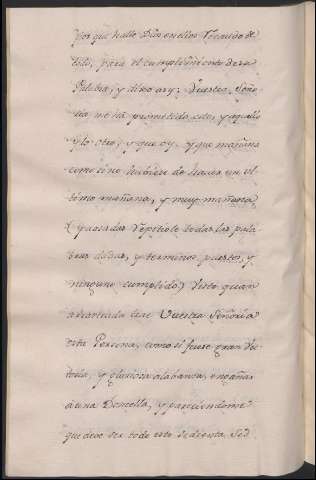 por que hallo Dios en ellos
todo, para el cumplimiento de su
Palabra, y dixo assy: Vuestra Seño-
ria me ha prometido esto, y aquello
y lo otro, y que oy, y que mañana
como si no hubiese de haver un ul-
timo mañana, y muy mañana
(y aqui repitiole todas las pala
bras dadas, y terminos puestos, y
ninguno cumplido) Visto quan
trae Vuestra Señoria
esta Persona, como si fuese gran Vic-
toria, y gloriosa alabanza, engañar
à una Doncella, y pareciendome
que deve ser todo esto sed